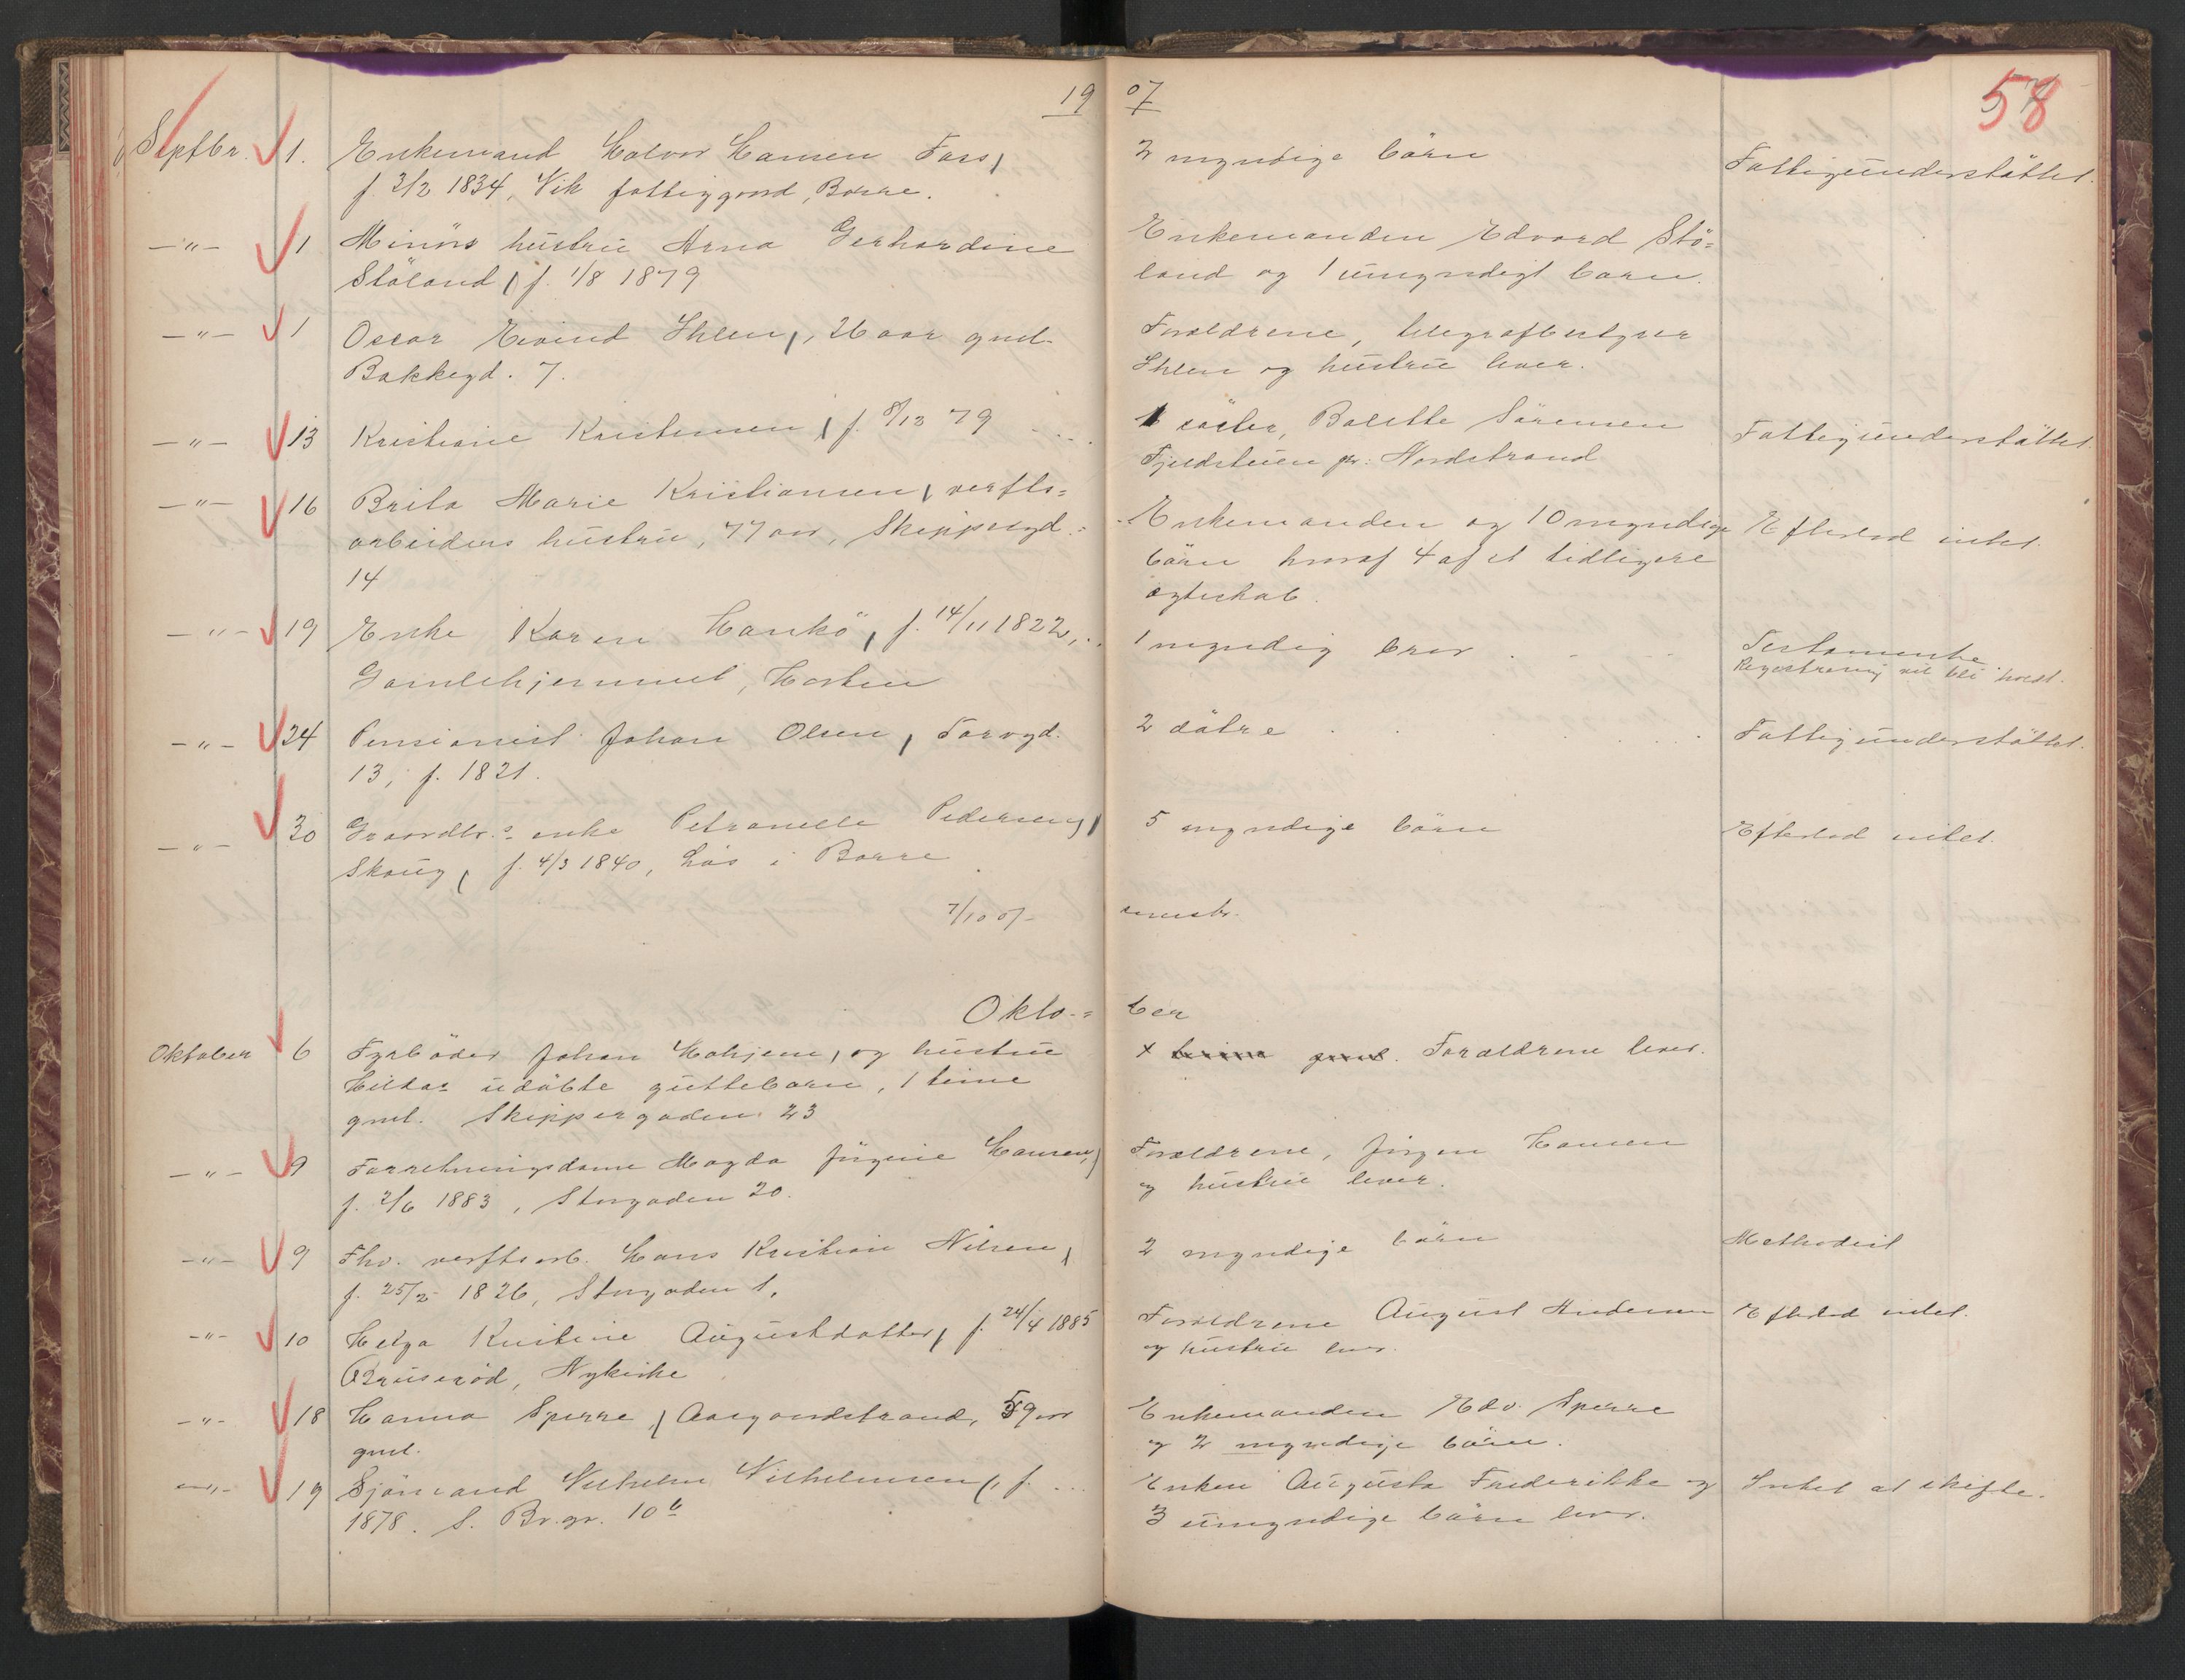 1907
58
Septbr. 1. Enkemand Halvor Hansen Fass, 2 myndige börn Fattigunderstöttet.
f. 3/2 1834, Vik fattiggaard, Borre.
-"- 1 Minörs hustru Anna Gerhardine Enkemanden Edvard Stö=
Stöland, f. 1/8 1879 land og 1 umyndigt barn.
-"- 1 Oscar Eivind Ihlen, 26 aar gml. Forældrene, telegrafbestyrer
Bakkegd. 7. Ihlen og hustru lever.
-"- 13 Kristiane Kristensen, f. 8/12 79 1 söster, Bolette Sörensen Fattigunderstöttet.
Fjeldstuen pr. Nordstrand
-"- 16 Brita Marie Kristiansen, verfts= Enkemanden og 10 myndige Efterlod intet.
arbeiders hustru, 77 aar, Skippergd. börn hvoraf 4 af et tidligere
14 ægteskab.
-"- 19 Enke Karen Hankö, f. 14/11 1822, 1 myndig bror Testamente
Registrering vil bli holdt.
Gamlehjemmet, Horten
-"- 24 Pensionist Johan Olsen, Torvgd. 2 døtre Fattigunderstöttet.
13, f. 1821.
-"- 30 Gaardbr.s enke Petronelle Pedersen, 5 myndige börn Efterlod intet.
Skoug, f. 4/3 1840, Lås i Borre
7/10 07
Okto-= ber
Oktober 6 Fyrböder Johan Hohjem, og hustru x time gml. Forældrene lever.
Hildas udöbte guttebarn, 1 time
gml. Skippergaden 23
-"- 9 Forretningsdame Magda Jörgine Hansen, Forældrene, Jörgen Hansen
f. 2/6 1883, Storgaden 20. og hustru lever.
-"- 9 Fhv. verftsarb. Hans Kristian Nilsen, 2 myndige börn Methodist
f. 25/2 1826, Storgaden 1.
-"- 10 Helga Kristine Augustdatter, f. 24/4 1885 Forældrene August Andersen Efterlod intet.
Bruseröd, Nykirke og hustru lever.
-"- 18 Hanna Sperre, Aasgaardstrand, 59 aar Enkemanden Edv. Sperre
gml. og 2 myndige börn.
-"- 19 Sjömand Vilhelm Vilhelmsen, f. Enken Augusta Frederikke og Intet at skifte.
1878. S. Br.gr. 10 b 3 umyndige börn lever.